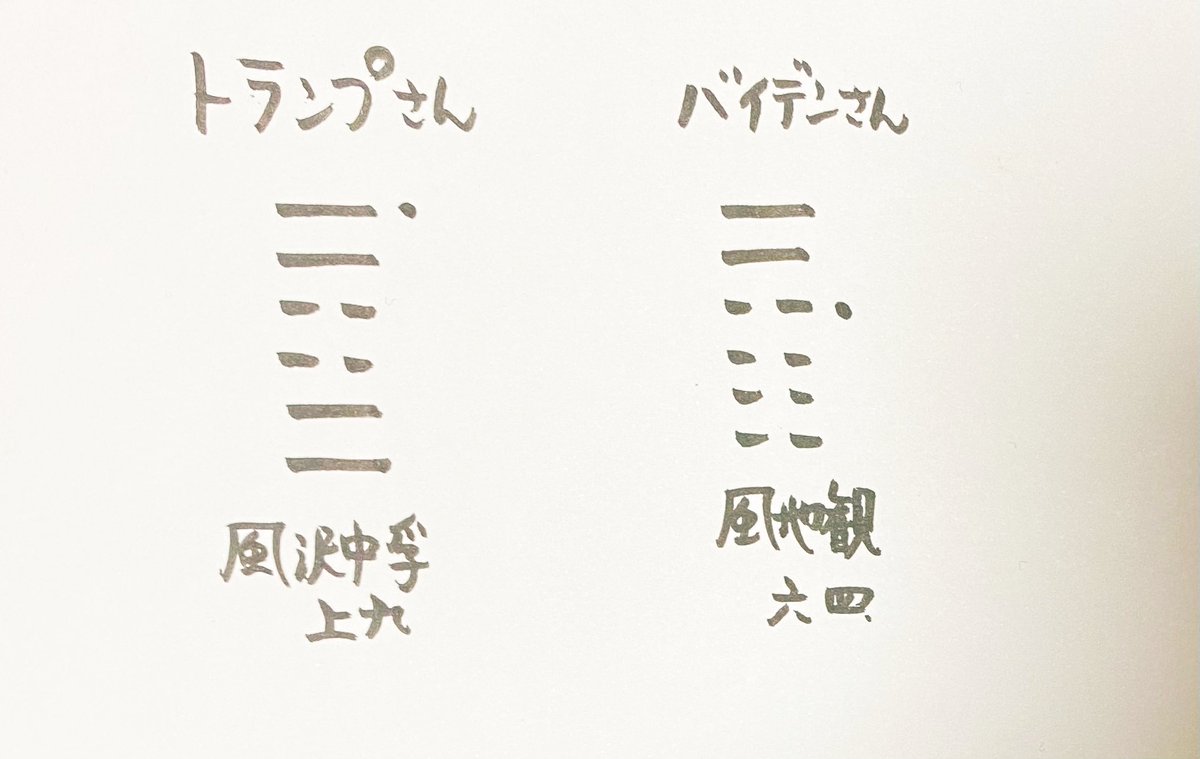 トランプさん
風沢中孚
上九
バイデンさん
風地観
六四